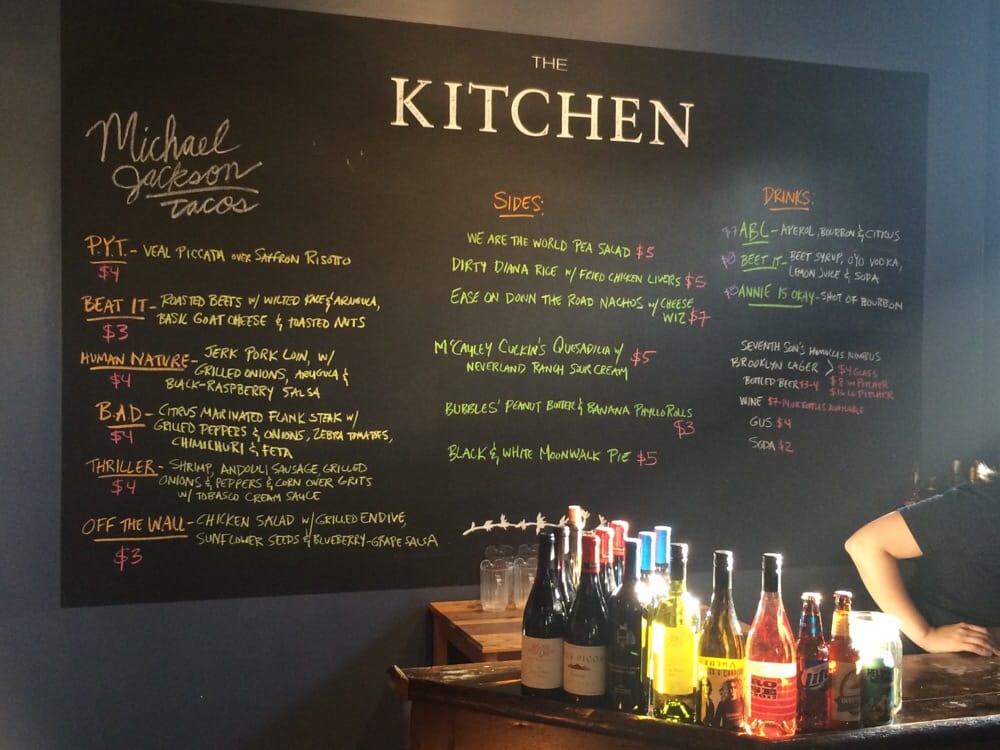 THE
KITCHEN
Michael
Jackson
Tacos
P.Y.T. - VEAL PICCATA OVER SAFFRON RISOTTO
$4
BEAT IT - ROASTED BEETS W/ WILTED KALE & ARUGULA,
BASIL GOAT CHEESE & TOASTED NUTS
$3
HUMAN NATURE - JERK PORK LOIN, W/
GRILLED ONIONS, ARUGULA &
BLACK-RASPBERRY SALSA
$4
B.A.D - CITRUS MARINATED FLANK STEAK W/
GRILLED PEPPERS & ONIONS, ZEBRA TOMATOES,
CHIMICHURI & FETA
$4
THRILLER - SHRIMP, ANDOULI SAUSAGE, GRILLED
ONIONS & PEPPERS & CORN OVER GRITS
W/ TOBASCO CREAM SAUCE
$4
OFF THE WALL - CHICKEN SALAD W/ GRILLED ENDIVE,
SUNFLOWER SEEDS & BLUEBERRY-GRAPE SALSA
$3
SIDES:
WE ARE THE WORLD PEA SALAD $5
DIRTY DIANA RICE W/ FRIED CHICKEN LIVERS $5
EASE ON DOWN THE ROAD NACHOS W/ CHEESE
WIZ $7
M'CAYLEY CULKIN'S QUESADILLA W/ $5
NEVERLAND RANCH SOUR CREAM
BUBBLES' PEANUT BUTTER & BANANA PHYLLO ROLLS
$3
BLACK & WHITE MOONWALK PIE $5
DRINKS:
$7 ABC - APEROL, BOURBON & CITRUS
BEET IT - BEET SYRUP, OYO VODKA,
LEMON JUICE & SODA
ANNIE IS OKAY - SHOT OF BOURBON
SEVENTH SON'S HUMULUS NIMBUS
BROOKLYN LAGER > $4 GLASS
BOTTLED BEER $3-4 $8 SM PITCHER
$16 LG PITCHER
WINE $7-14 OR BOTTLES AVAILABLE
GUS $4
SODA $2
ROSE
Lite